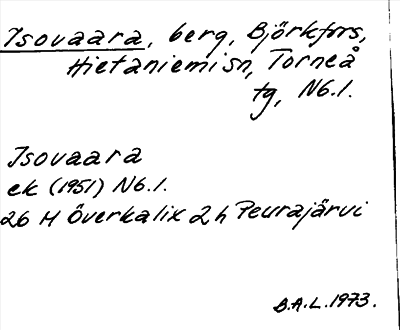 Isovaara, berg, Björkfors,
Hietaniemi sn, Torneå
tg, Nb.l.
Isovaara
ek (1951) Nb.l.
26 H Överkalix 2 h Peurajärvi
B.A.L. 1973.